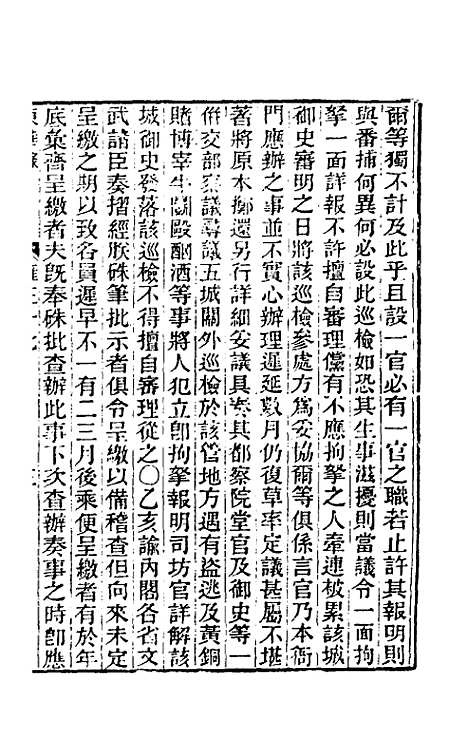 爾等獨不計及此乎且設一官必有一官之職若止許其報明則
與番捕何異何必設此巡檢如恐其生事滋擾則當議令一面拘
拏一面詳報不許擅自審理儻有不應拘拏之人牽連被累該城
御史審明之日將該巡檢參處方爲妥協爾等俱係言官乃本衙
門應辦之事並不實心辦理遲延數月仍復草率定議甚屬不堪
著將原本擲還另行詳細妥議具奏其都察院堂官及御史等一
併交部察議尋議五城關外巡檢於該管地方遇有盜逃及黃銅
賭博宰牛鬭毆酗酒等事將人犯立卽拘拏報明司坊官詳解該
城御史發落該巡檢不得擅自審理從之〇乙亥諭內閣各省文
武諸臣奏摺經朕硃筆批示者俱令呈繳以備稽查但向來未定
呈繳之期以致各員遲早不一有二三月後乘便呈繳者有於年
底彙齊呈繳者夫旣奉硃批查辦此事下次查辦奏事之時卽應